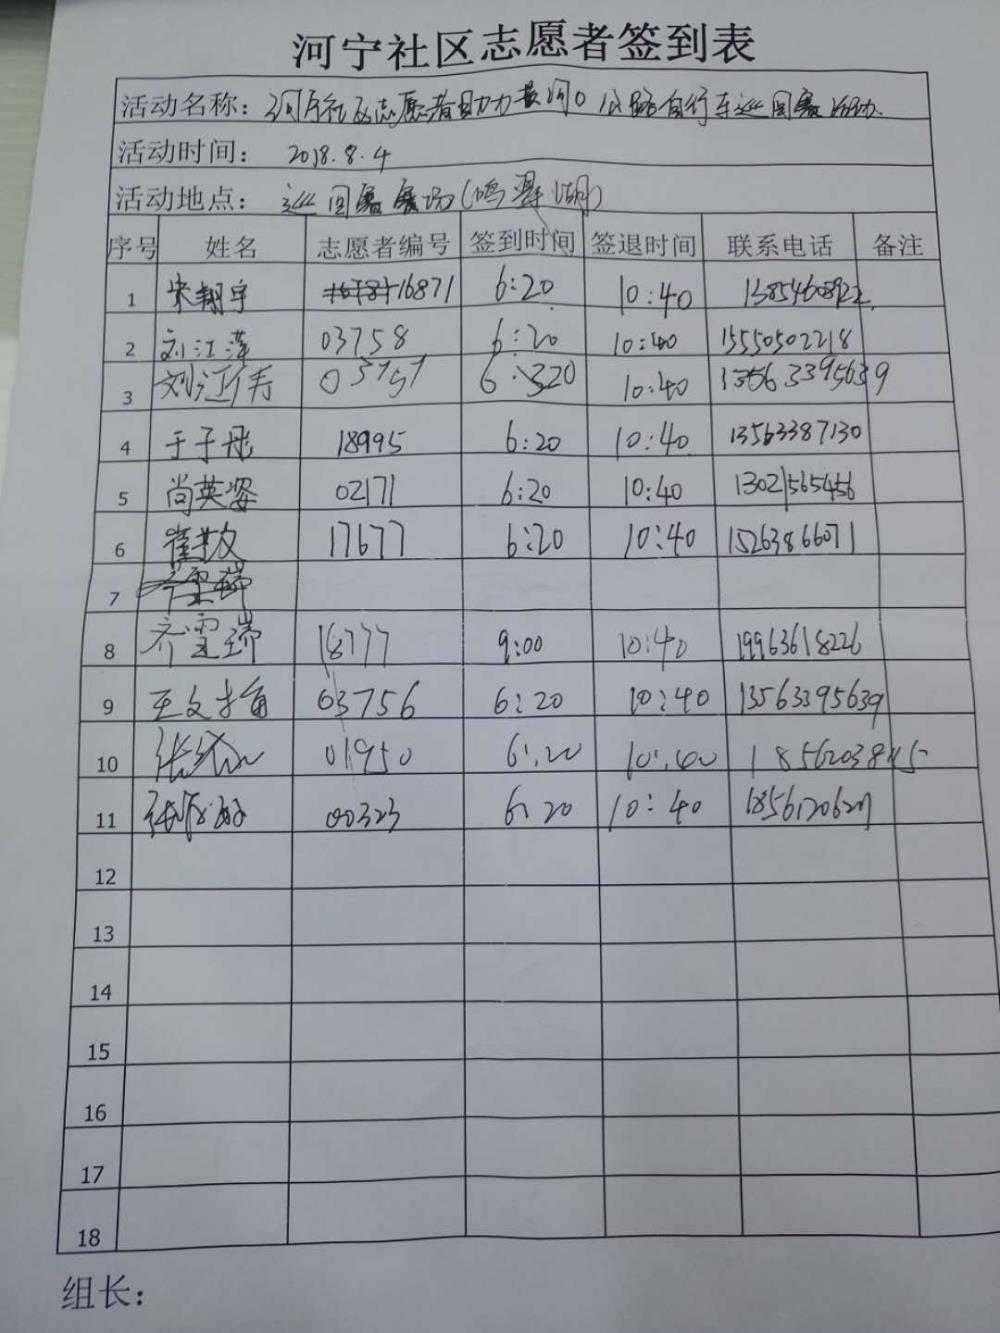 河宁社区志愿者签到表
活动名称: 河宁社区志愿者助力黄河口公路自行车巡回赛活动
活动时间: 2018.8.4
活动地点: 巡回赛赛场(鸣翠湖)
序号 姓名 志愿者编号 签到时间 签退时间 联系电话 备注
1 宋翔宇 16871 6:20 10:40
2 刘江萍 03758 6:20 10:40 15550502218
3 刘江伟 03757 6:20 10:40
4 于子彤 18995 6:20 10:40 13563387130
5 尚英姿 02171 6:20 10:40 13021565456
6 崔 17677 6:20 10:40 15263866071
7
8 齐雪瑞 18777 9:00 10:40 19963618226
9 王文 03756 6:20 10:40 13563395639
10 张 01950 6:20 10:40
11 00323 6:20 10:40
12
13
14
15
16
17
18
组长: